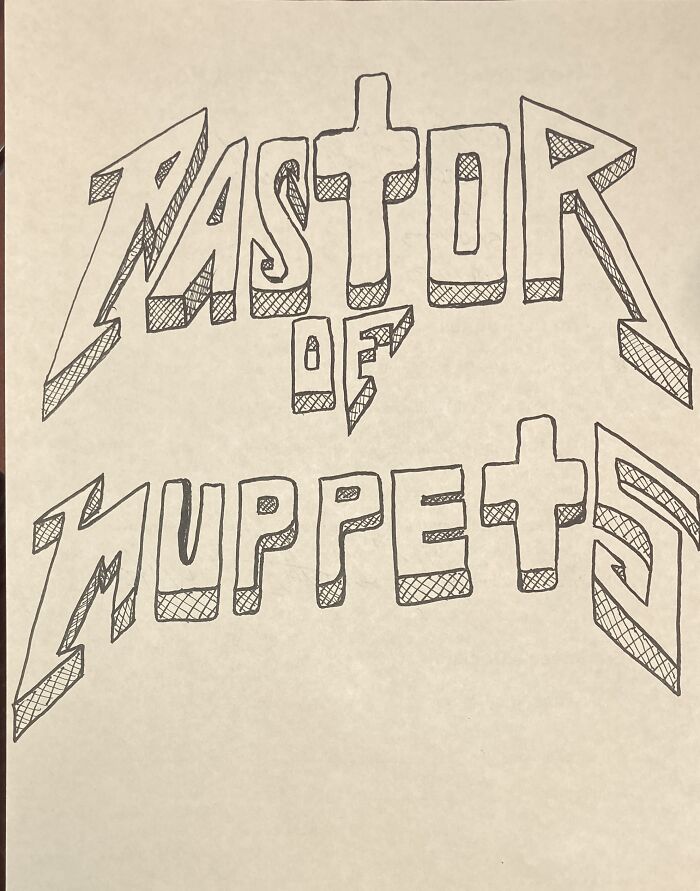 PASTOR
OF
MUPPETS